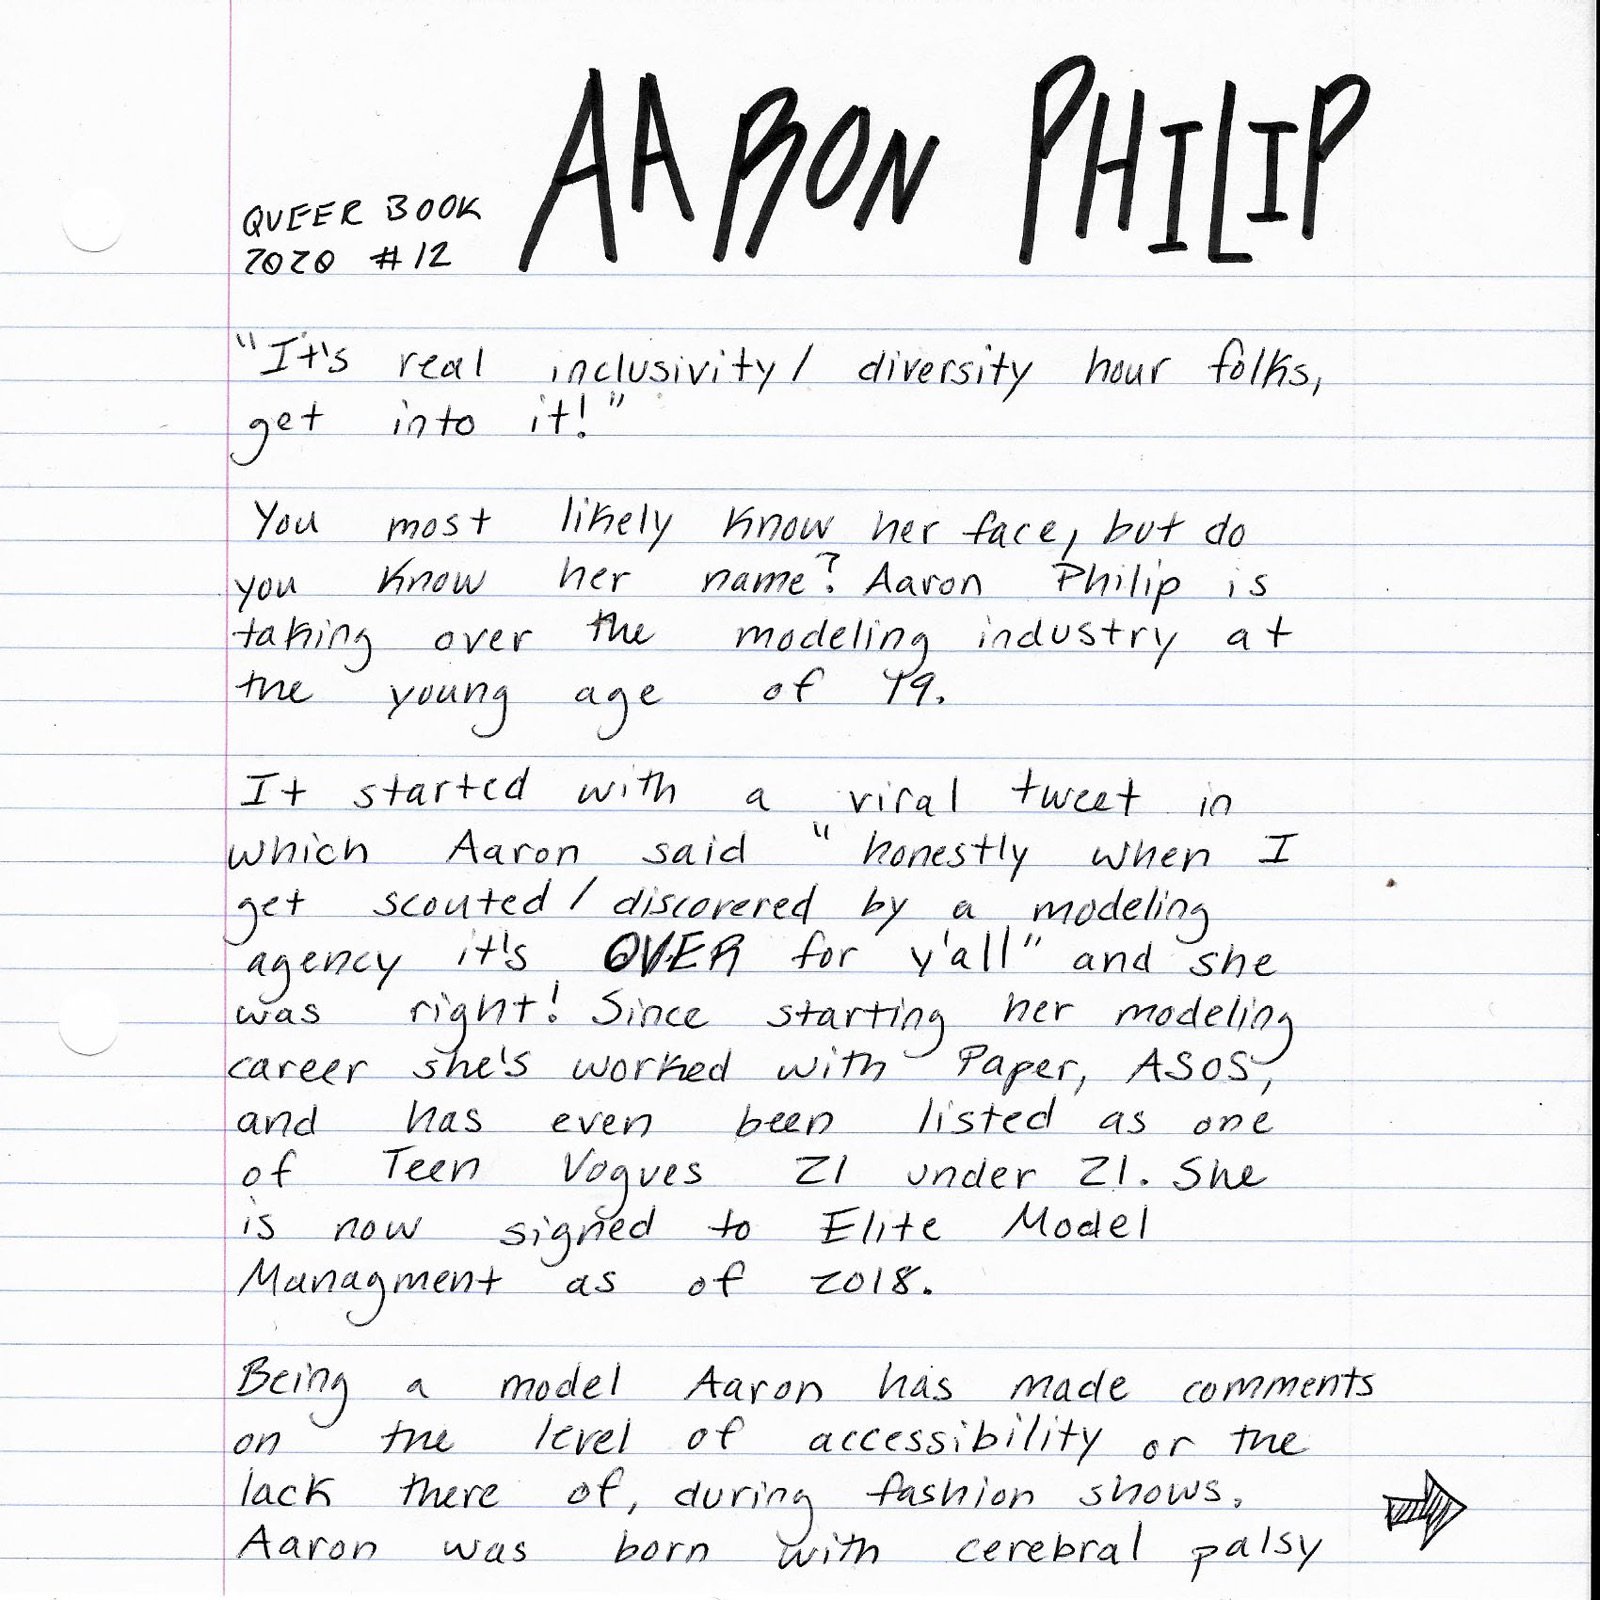 AARON PHILIP
QUEER BOOK
2020 #12
"It's real inclusivity/ diversity hour folks,
get into it!"
You most likely know her face, but do
you know her name? Aaron Philip is
taking over the modeling industry at
the young age of 19.
It started with a viral tweet in
which Aaron said "honestly when I
get scouted/discovered by a modeling
agency it's OVER for y'all" and she
was right! Since starting her modeling
career she's worked with Paper, ASOS,
and has even been listed as one
of Teen Vogues 21 under 21. She
is now signed to Elite Model
Managment as of 2018.
Being a model Aaron has made comments
on the level of accessibility or the
lack there of, during fashion shows.
Aaron was born with cerebral palsy